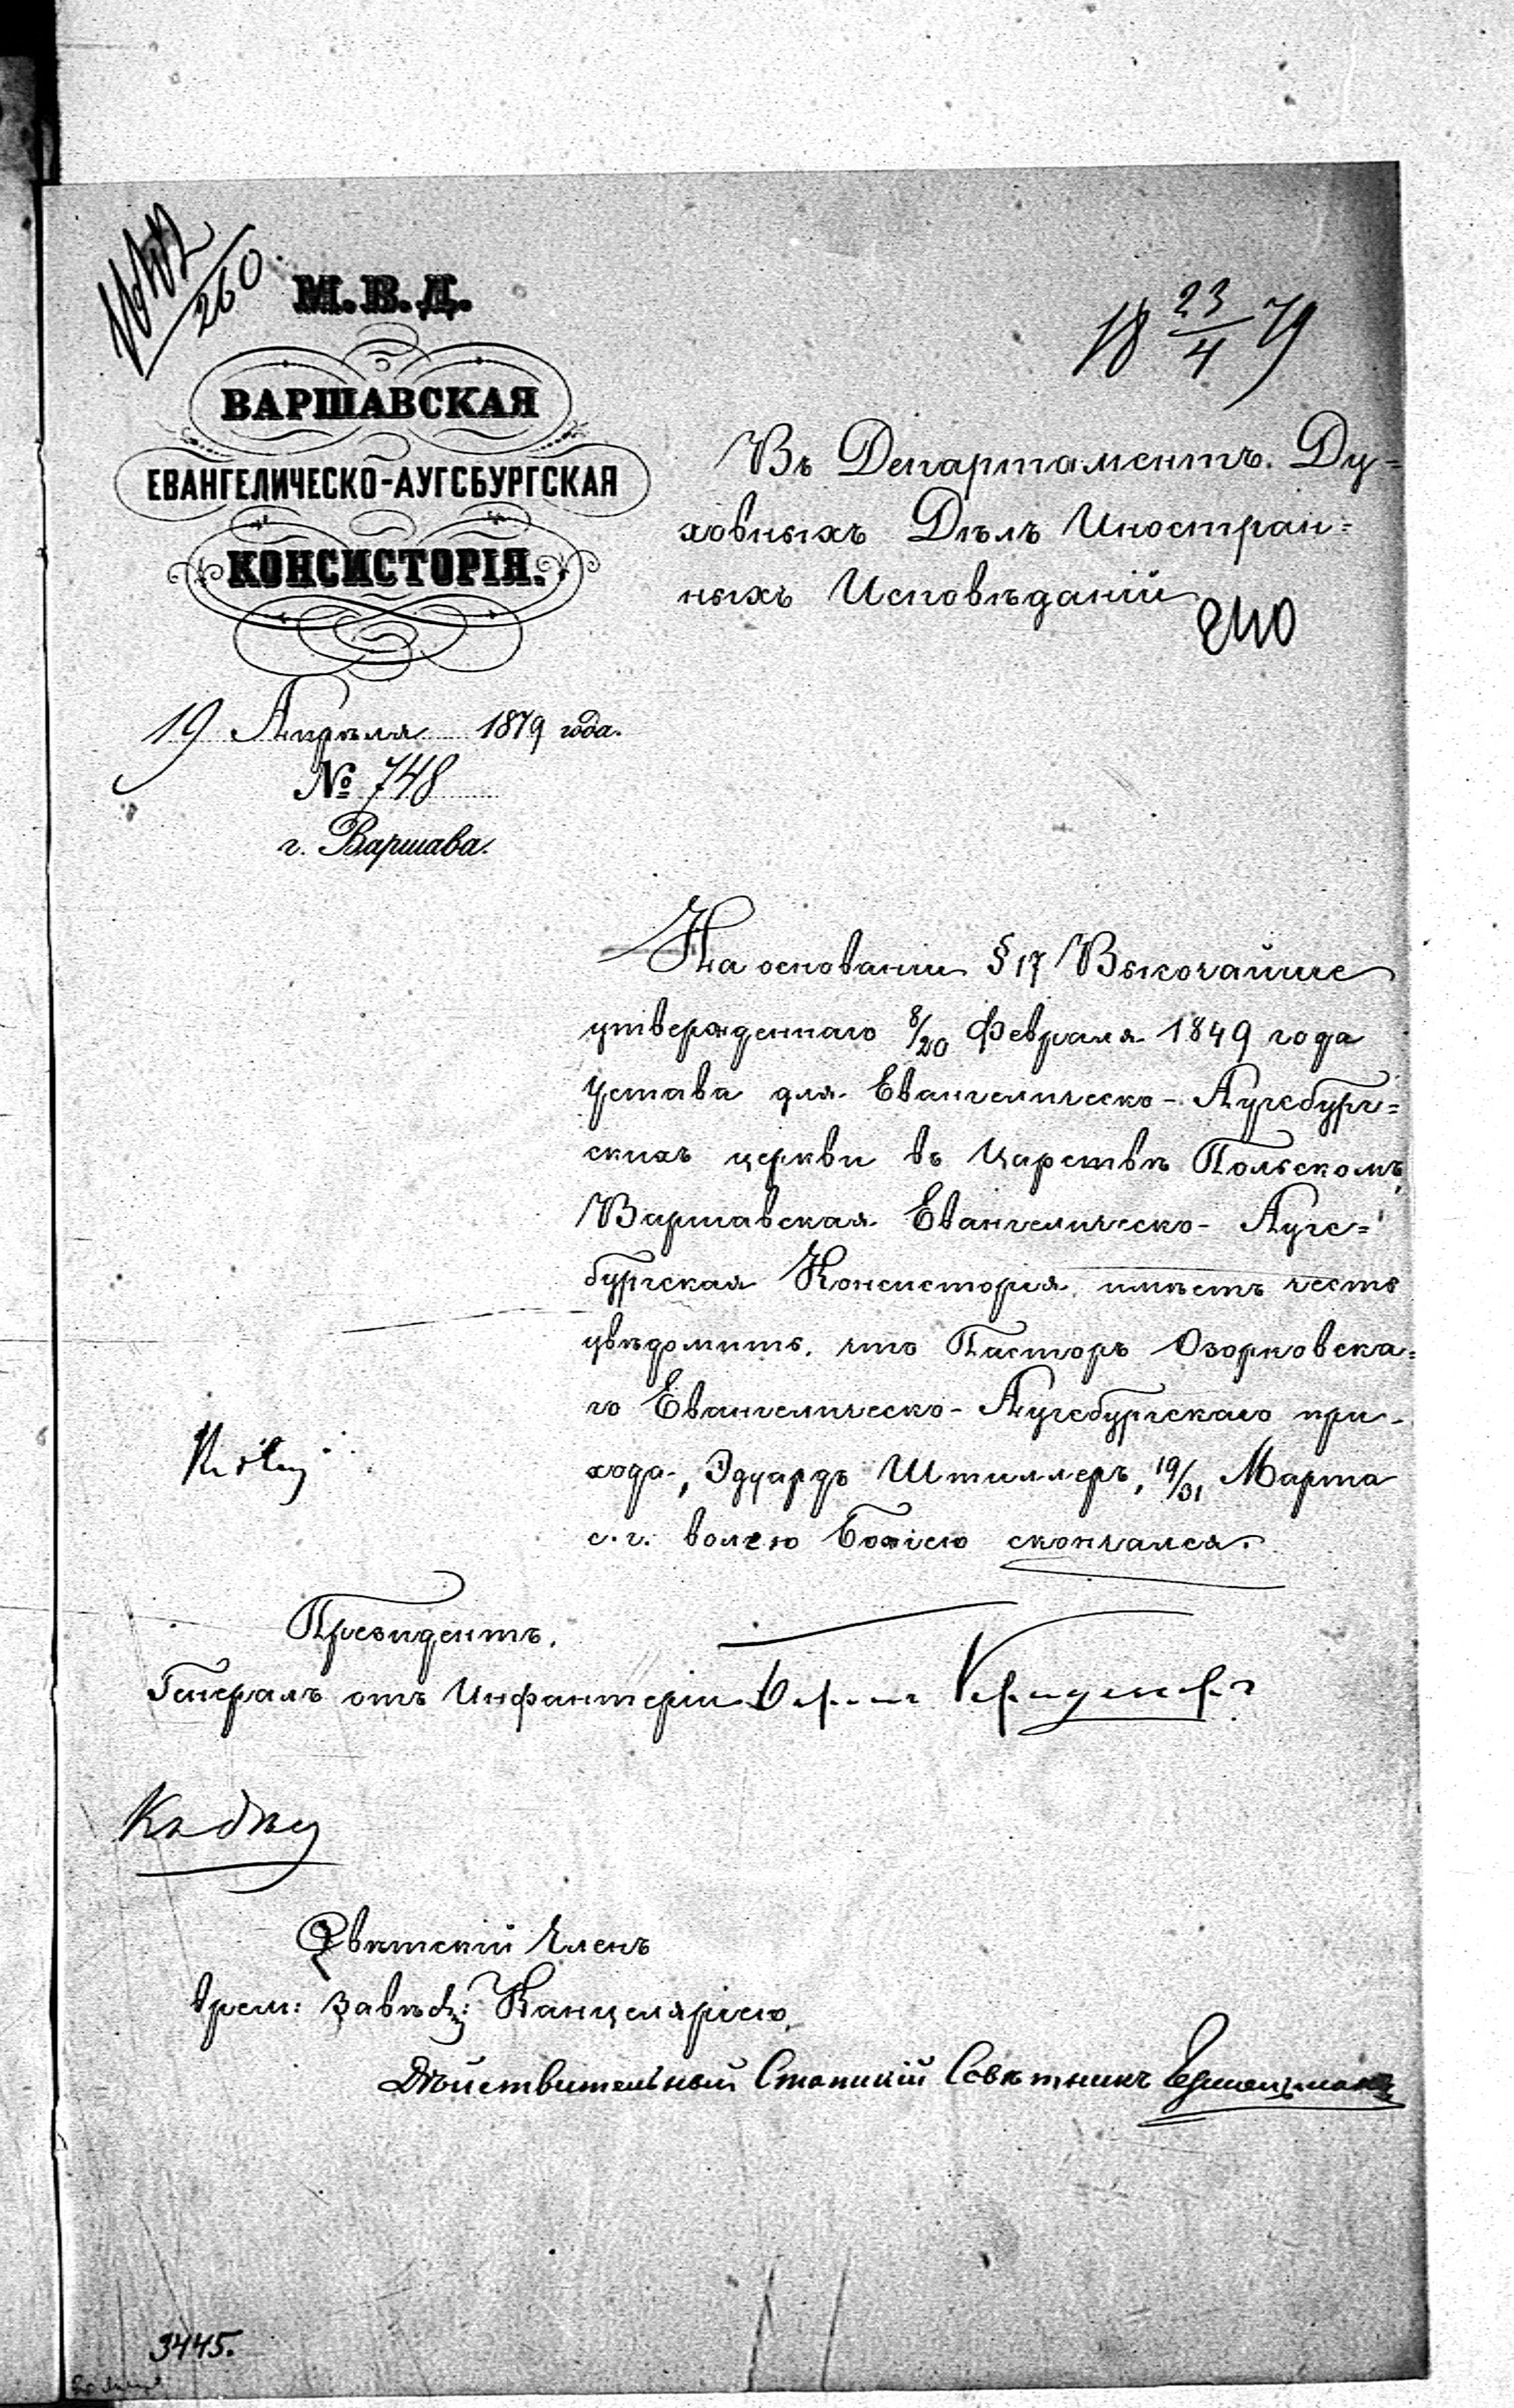 260
М.В.Д.
ВАРШАВСКАЯ
ЕВАНГЕЛИЧЕСКО-АУГСБУРГСКАЯ
КОНСИСТОРІЯ.
19 Апрѣля 1879 года.
№ 748
г. Варшава.
18 23/4 79
Въ Департаментъ Ду=
ховныхъ Дѣлъ Иностран=
ныхъ Исповѣданій
240
На основаніи § 17 Высочайше
утвержденнаго 8/20 Февраля 1849 года
Устава для Евангелическо-Аугсбург=
скихъ церкви въ Царствѣ Польскомъ,
Варшавская Евангелическо-Аугс=
бургская Консисторія имѣетъ честь
увѣдомить, что Пасторъ Озорковска=
го Евангелическо-Аугсбургскаго при-
хода, Эдуардъ Штиллеръ, 19/31 Марта
с. г. волею Божіею скончался.
Президентъ,
Генералъ отъ Инфантеріи Баронъ Криденеръ
Къ дѣлу
Свѣтскій Членъ
врем: завѣд: Канцеляріею,
Дѣйствительный Статскій Совѣтникъ
3445.